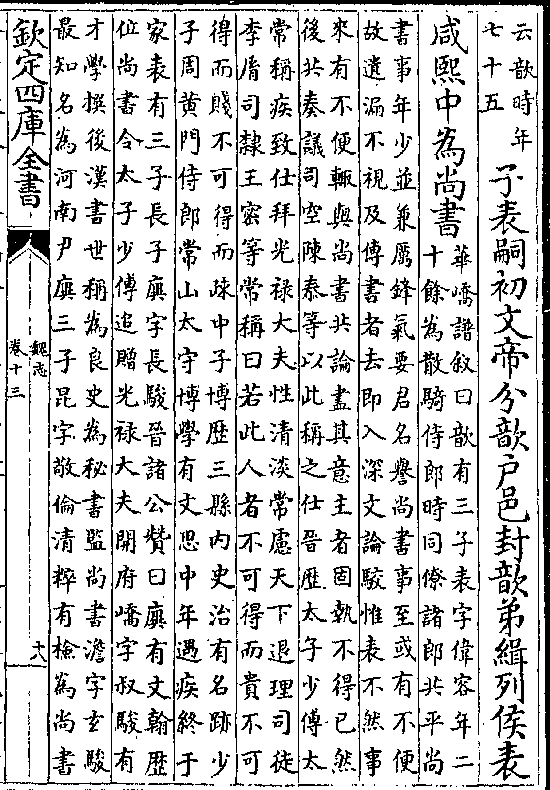 云歆時年
七十五
子表嗣初文帝分歆户邑封歆弟緝列侯表
咸熙中為尚書
華嶠譜叙曰歆有三子表字偉容年二
十餘為散騎侍郎時同僚諸郎共平尚
書事年少並兼厲鋒氣要君名譽尚書事至或有不便
故遺漏不視及傳書者去即入深文論駮惟表不然事
來有不便輒與尚書共論盡其意主者固執不得已然
後共奏議司空陳泰等以此稱之仕晉歷太子少傅太
常稱疾致仕拜光禄大夫性清淡常慮天下退理司徒
李膺司隸王宻等常稱曰若此人者不可得而貴不可
得而賤不可得而疎中子博歷三縣内史治有名跡少
子周黄門侍郎常山太守博學有文思中年遇疾終于
家表有三子長子廙字長駿晉諸公贊曰廙有文翰歷
位尚書令太子少傅追贈光禄大夫開府嶠字叔駿有
才學撰後漢書世稱為良史為秘書監尚書澹字玄駿
最知名為河南尹廙三子昆字敬倫清粹有檢為尚書
欽定四庫全書
魏志
卷十三
十八